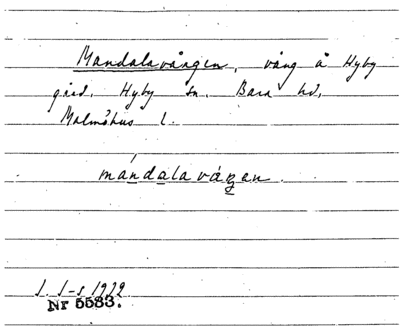 Mandalavången, vång å Hyby
gård, Hyby sn. Bara hd,
Malmöhus l.
mándalaváŋen.
I. I-s 1929
Nr 5583.